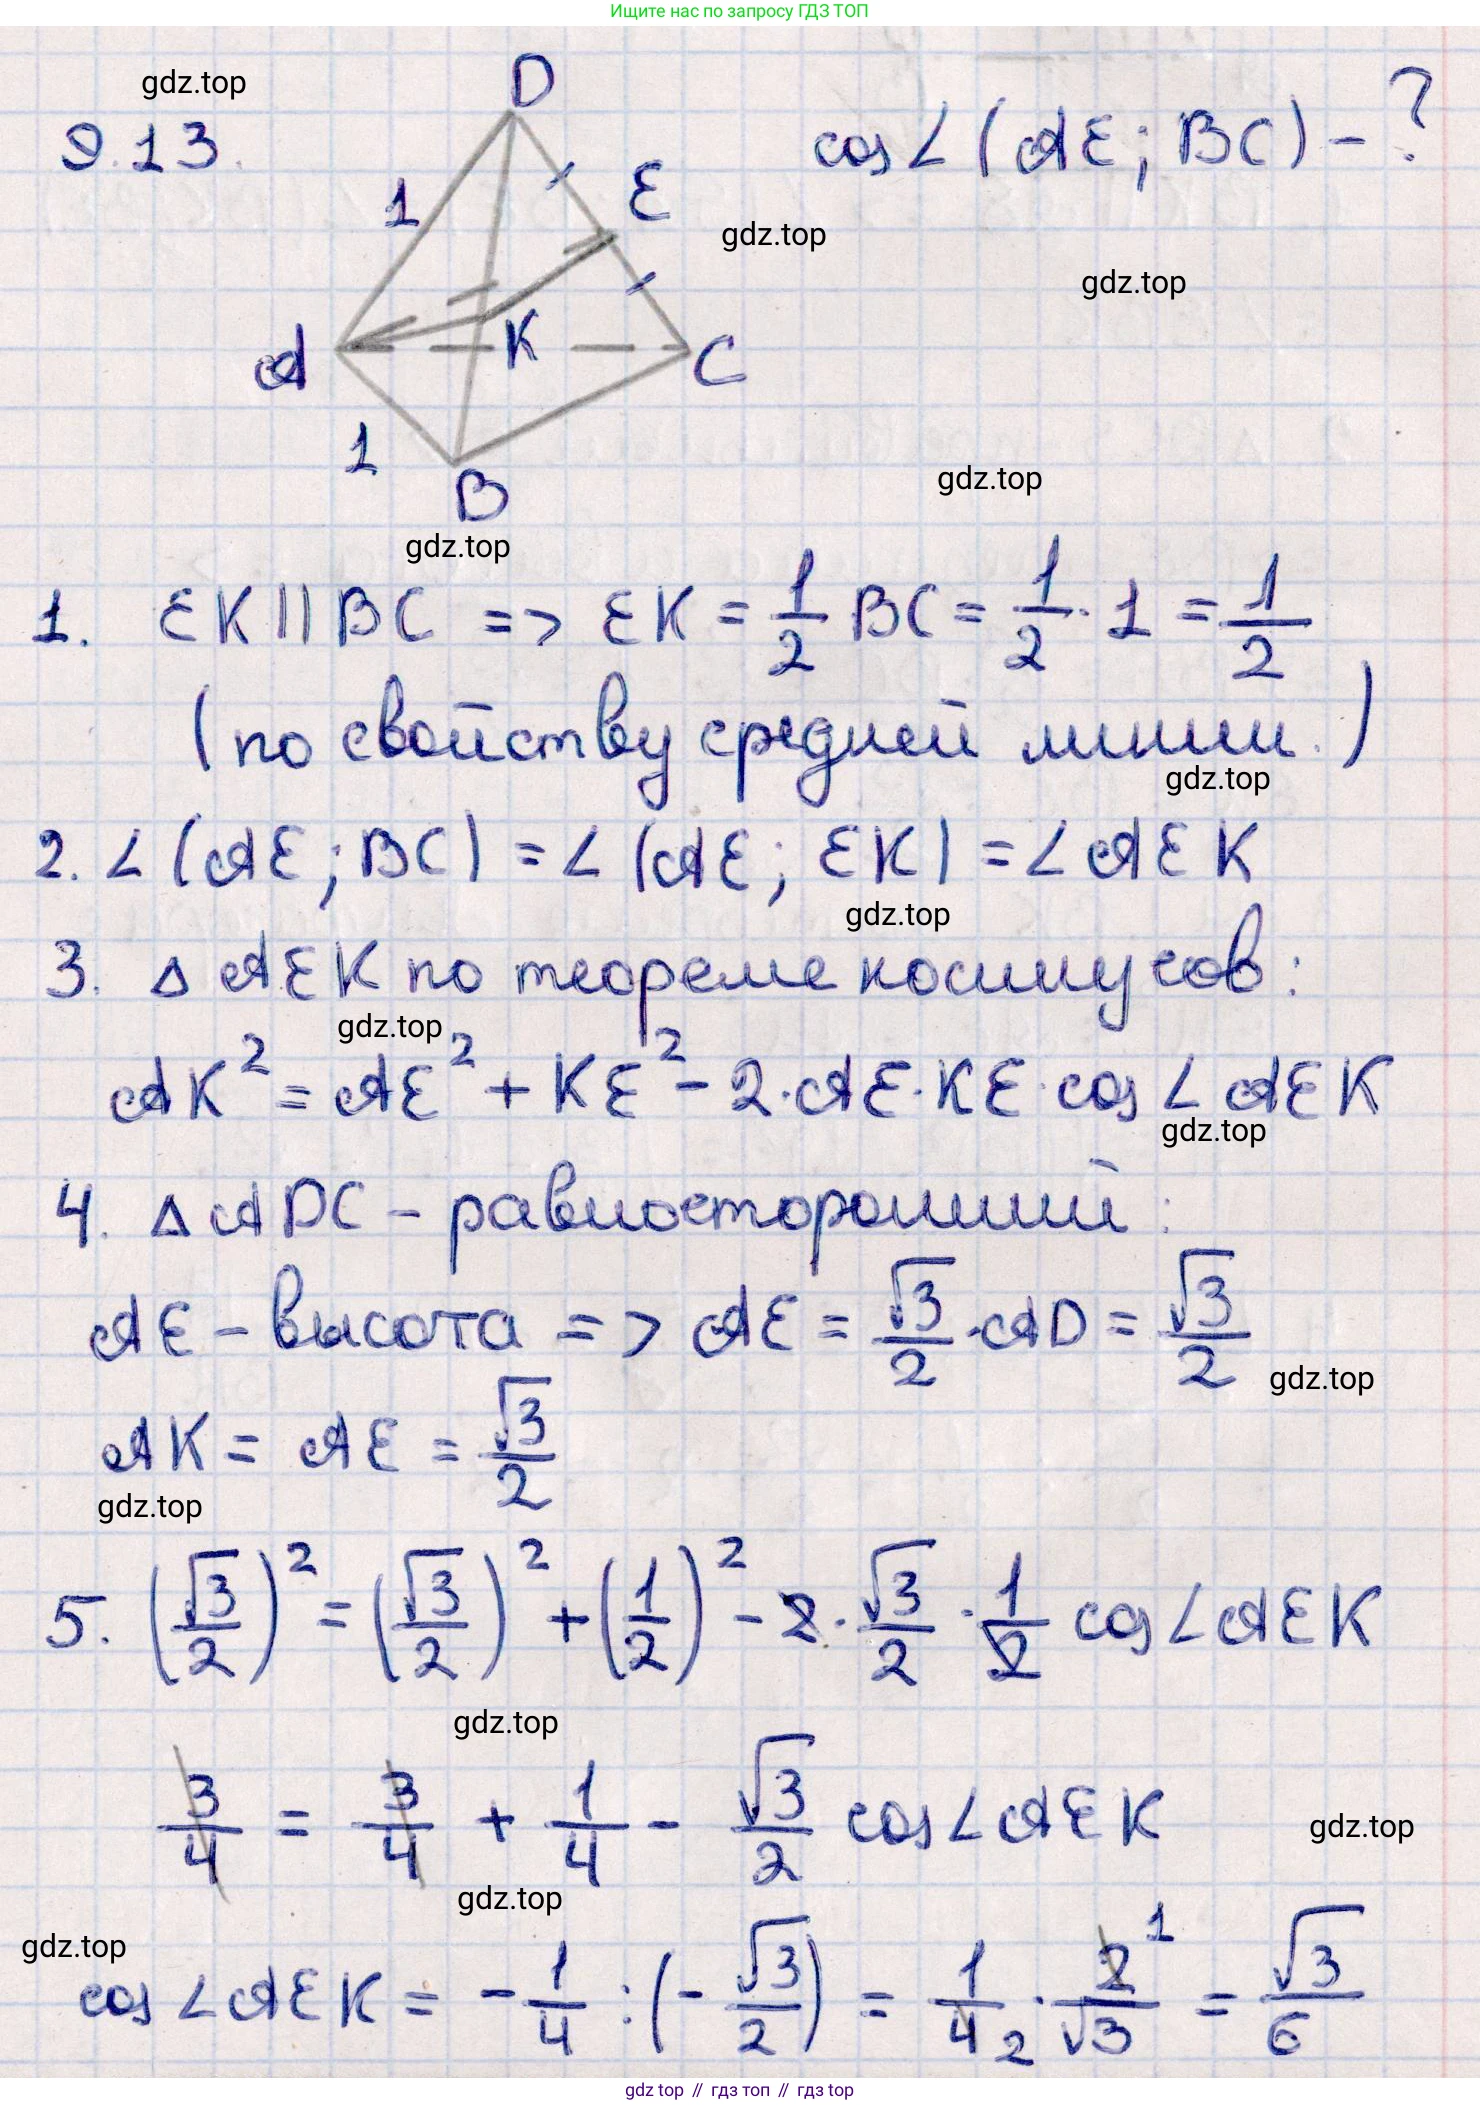 Ищите нас по запросу ГДЗ ТОП
gdz.top
9.13.
D
cos∠(AE; BC) - ?
1
E
gdz.top
gdz.top
A
K
C
1
B
gdz.top
gdz.top
1. EK || BC => EK = 1/2 BC = 1/2 · 1 = 1/2
(по свойству средней линии.)
gdz.top
2. ∠(AE; BC) = ∠(AE; EK) = ∠AEK
gdz.top
3. △AEK по теореме косинусов:
gdz.top
AK² = AE² + KE² - 2·AE·KE·cos∠AEK
gdz.top
4. △ADC - равносторонний:
AE - высота => AE = √3/2 · AD = √3/2
gdz.top
AK = AE = √3/2
gdz.top
5. (√3/2)² = (√3/2)² + (1/2)² - 2·√3/2·1/2 cos∠AEK
gdz.top
3/4 = 3/4 + 1/4 - √3/2 cos∠AEK
gdz.top
gdz.top
gdz.top
cos∠AEK = -1/4 : (-√3/2) = 1/4 2 · 2 1/√3 = √3/6
gdz top // гдз топ // гдз top